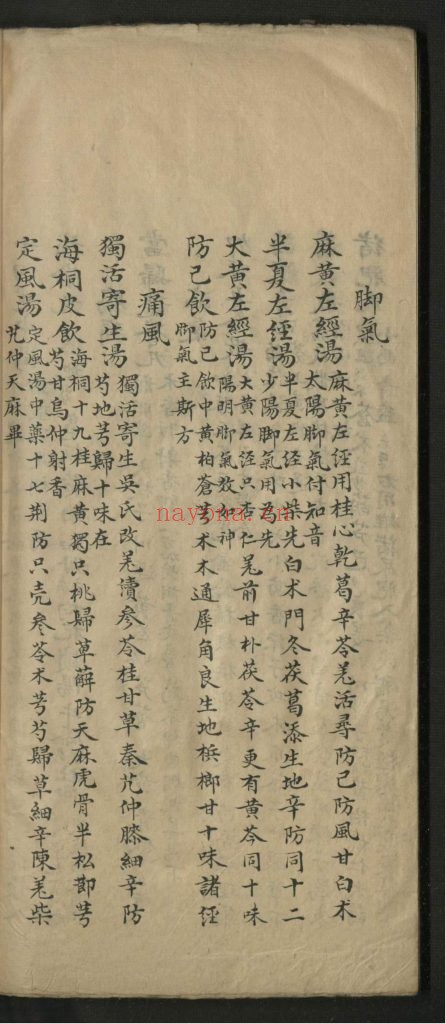 脚氣
麻黄左經湯 麻黄左徑用桂心乾葛辛苓羌活尋防己防風甘白术
太陽脚氣付知音
半夏左徑湯 半夏左徑小柴先白术門冬茯葛添生地辛防同十二
少陽脚氣用為先
大黄左經湯 大黄左徑只杏仁羌前甘朴茯苓辛更有黄芩同十味
陽明脚氣效如神
防己飲 防己飲中黄柏蒼术木通犀角良生地梹榔甘十味諸徑
脚氣主斯方
痛風
獨活寄生湯 獨活寄生吳氏改羌瀆參苓桂甘草秦艽仲膝細辛防
芍地芎歸十味在
海桐皮飲 海桐十九桂麻黄獨只桃歸草薢防天麻虎骨半松節芎
芍甘烏仲射香
定風湯 定風湯中藥十七荆防只壳參苓术芎芍歸草細辛陳羌柴
艽仲天麻畢
nayona.cn